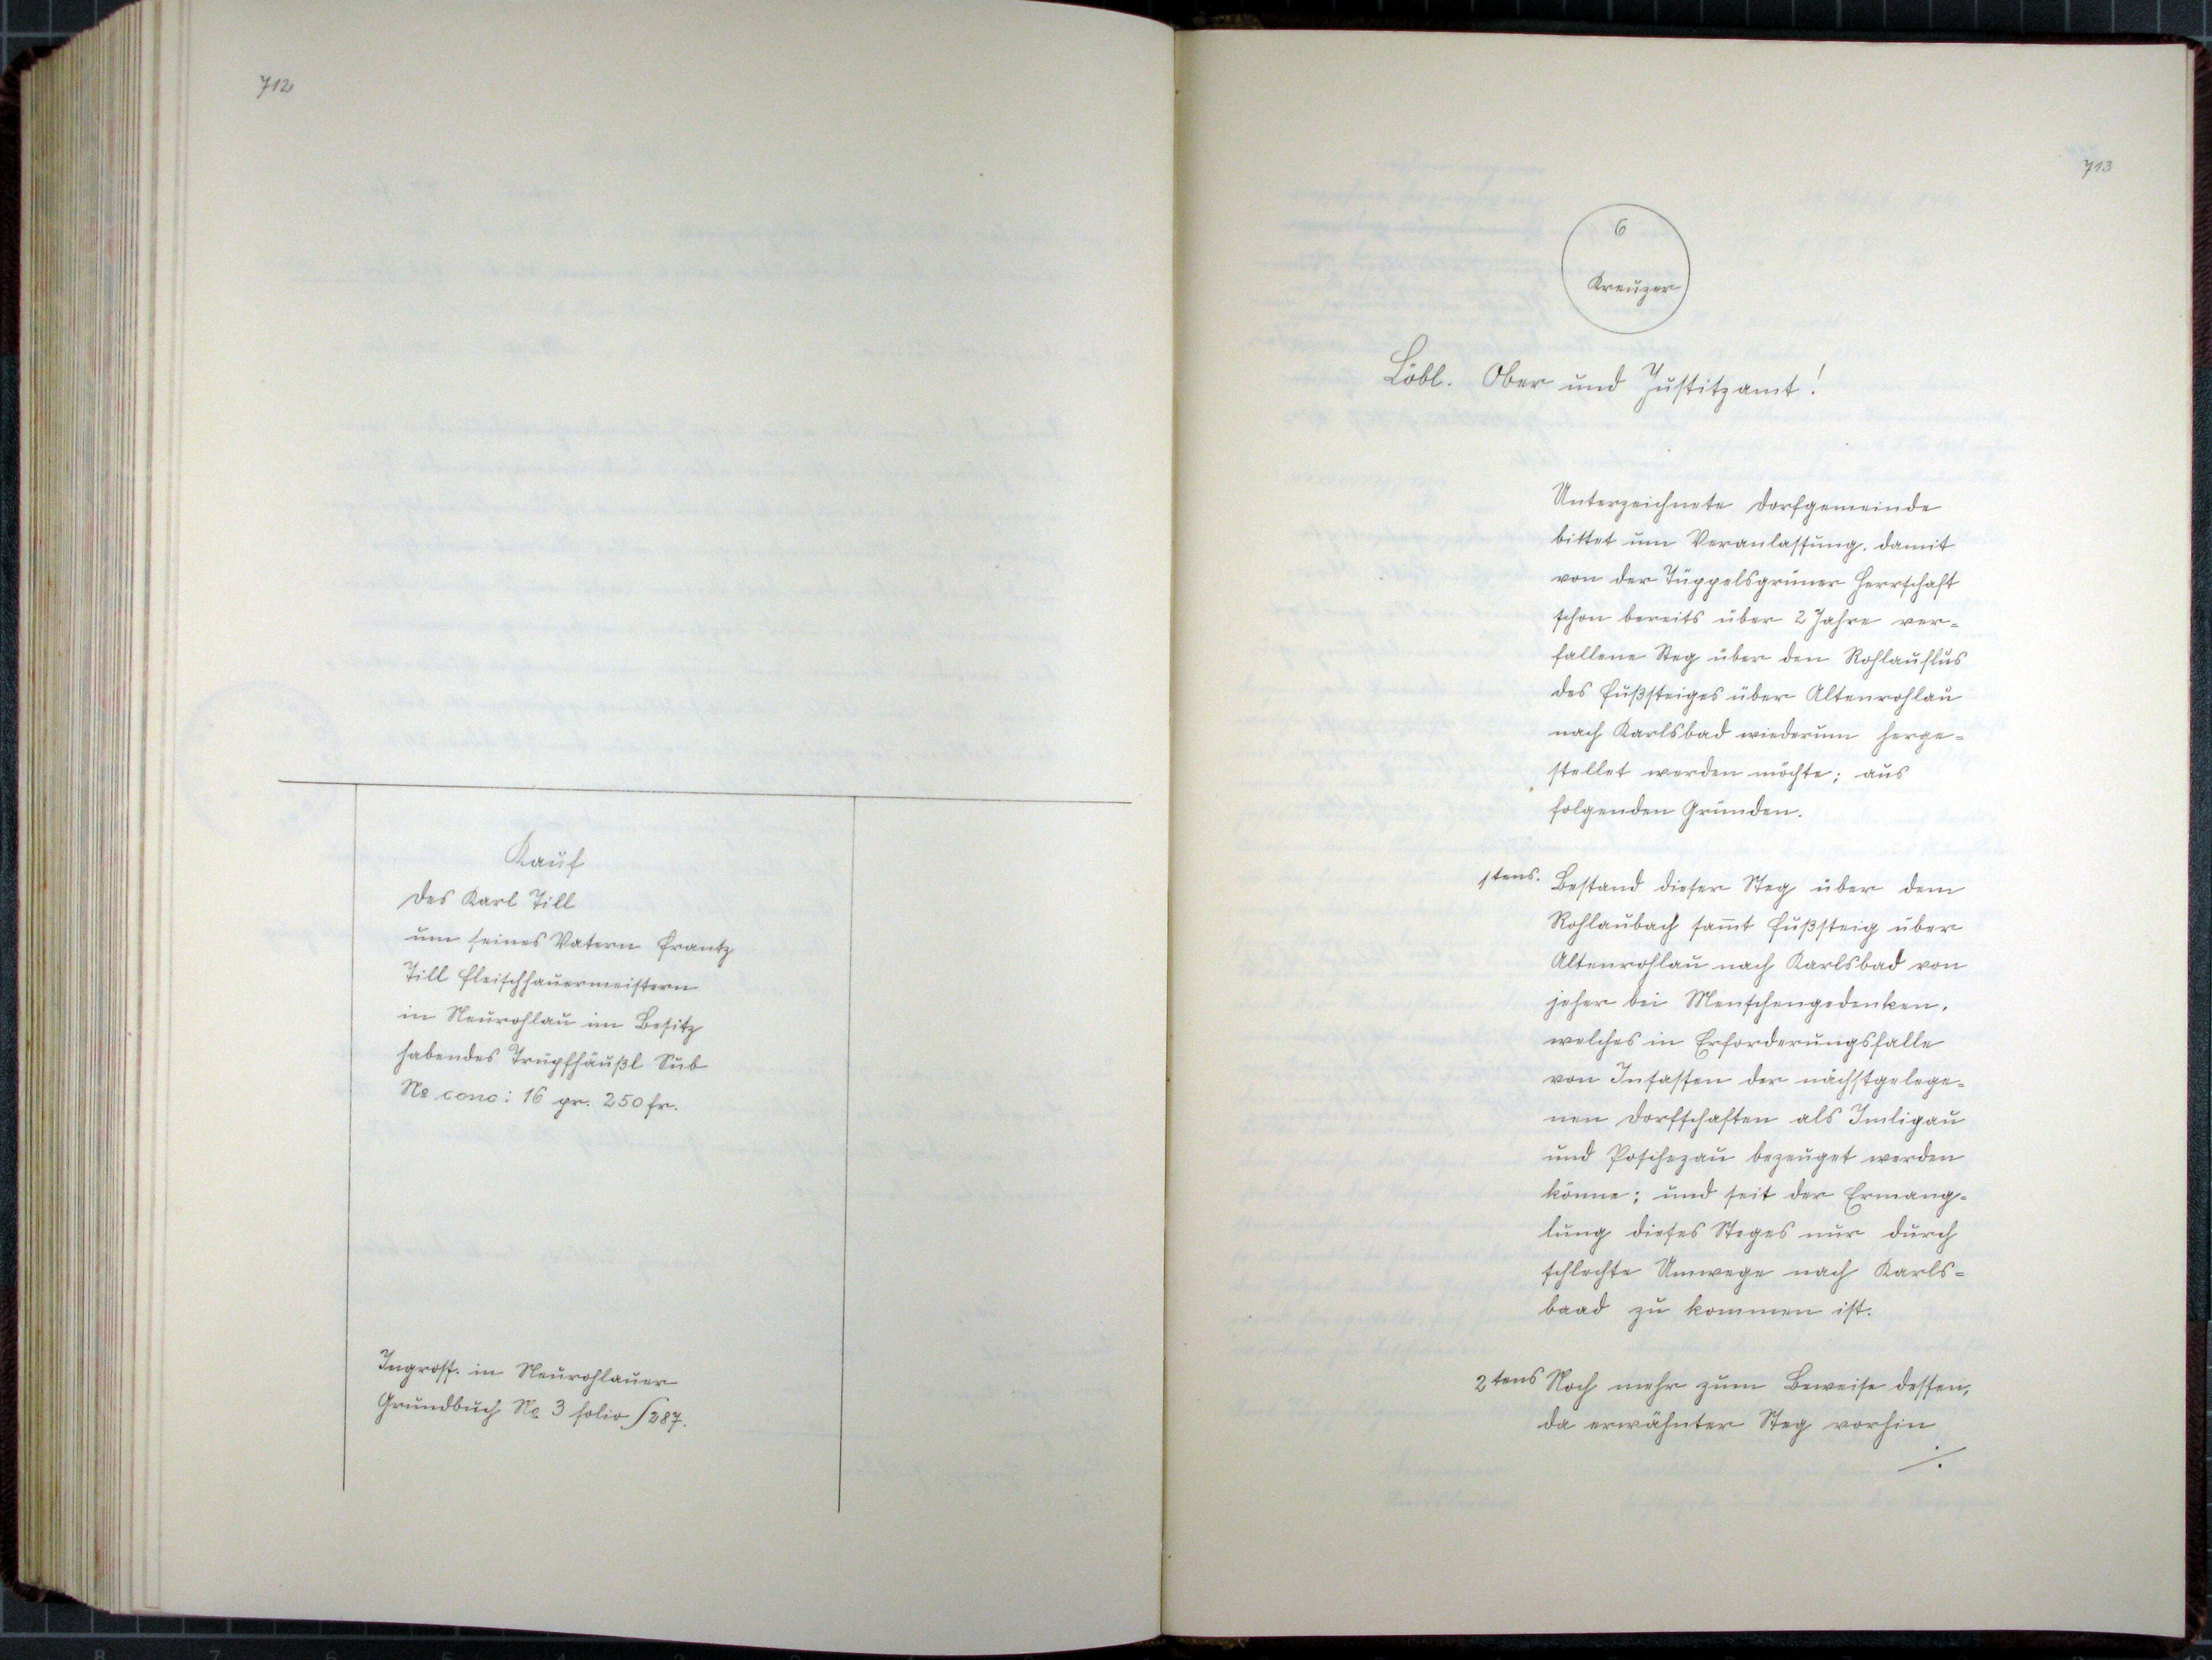 712
Kauf
des Karl Till
um seines Vatern Frantz
Till Fleischhauermeistern
in Neurohlau im Besitz
habendes Trüpfhäußl Sub
No conc: 16 pr. 250 fr.
Ingross. in Neurohlauer
Grundbuch No 3 folio 287.
713
6
Kreuzer
Löbl. Ober und Justitzamt!
Unterzeichnete Dorfgemeinde
bittet um Veranlassung, damit
von der Tüppelsgrüner Herrschaft
schon bereits über 2 Jahre ver=
fallene Steg über den Rohlauflus
des Fußsteiges über Altenrohlau
nach Karlsbad wiederum herge=
stellet werden möchte; aus
folgenden Gründen.
1tens. Bestand dieser Steg über dem
Rohlaubach sam̄t Fußsteig über
Altenrohlau nach Karlsbad von
jeher bei Menschengedenken,
welches in Erforderungsfalle
von Insassen der nächstgelege=
nen Dorfschaften als Imligau
und Poschezau bezeuget werden
könne; und seit der Ermang=
lung dieses Steges nur durch
schlechte Umwege nach Karls=
baad zu kommen ist.
2tens Noch mehr zum Beweise dessen,
da erwähnter Steg vorhin
./.